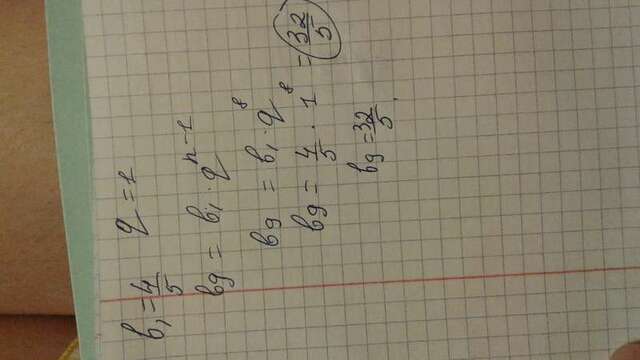 b₁ = 4/5   q = 1
b9 = b₁ · qⁿ⁻¹
b9 = b₁ · q⁸
b9 = 4/5 · 1⁸ = 32/5
b9 = 32/5.